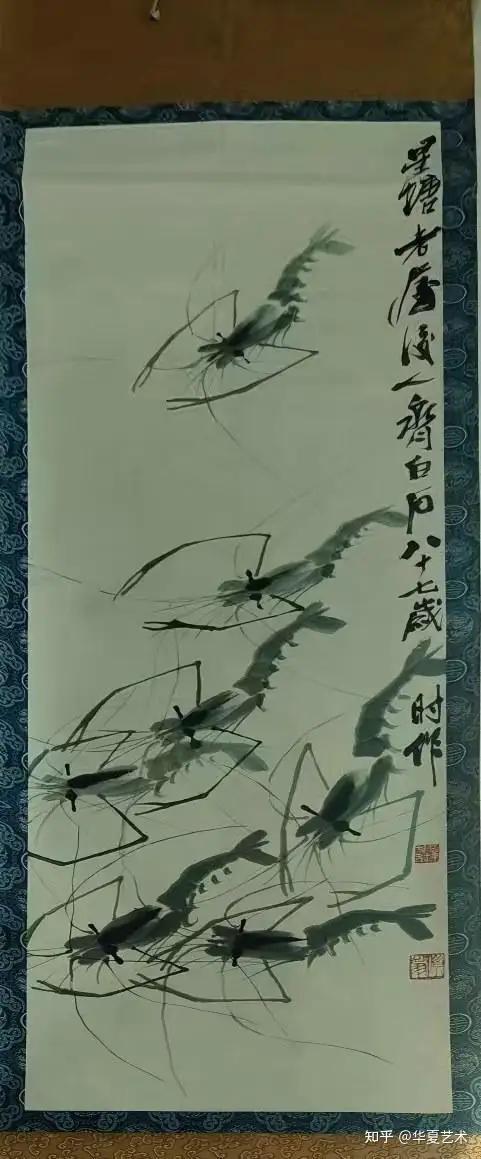 星塘老屋後人齊白石八十七歲
时作
知乎 @华夏艺术